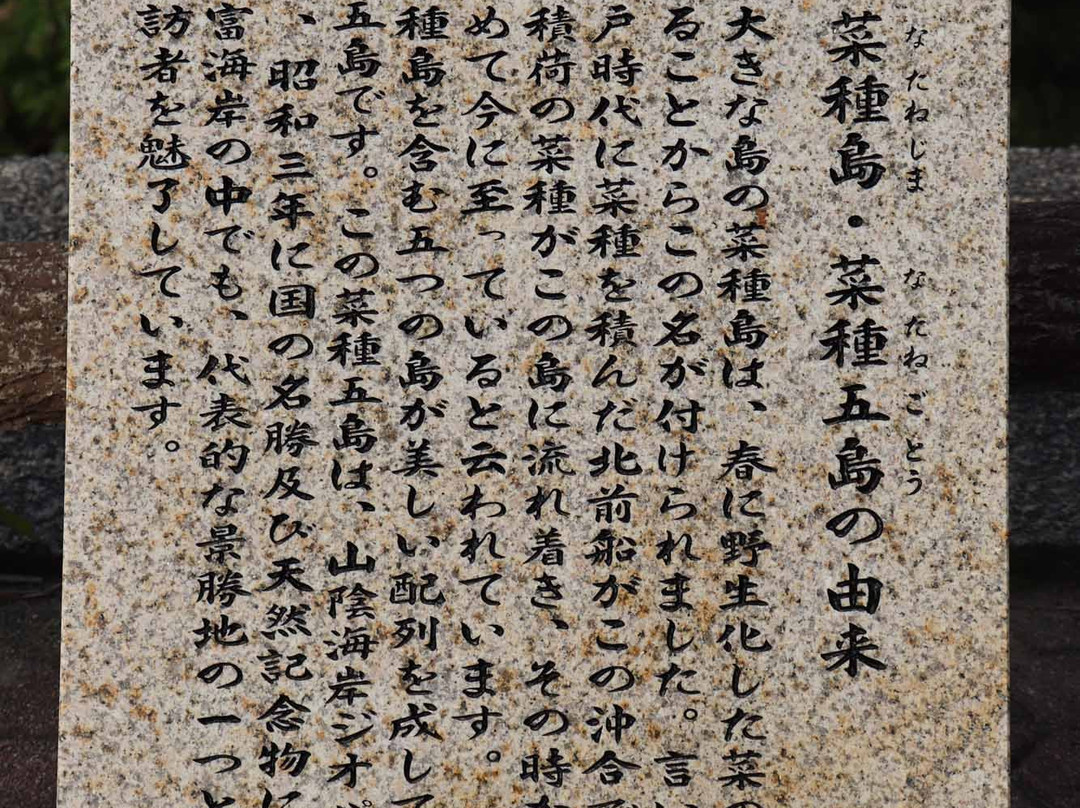 菜種島・菜種五島の由来
なたねじま なたねごとう
大きな島の菜種島は、春に野生化した菜の
ることからこの名が付けられました。言い
戸時代に菜種を積んだ北前船がこの沖合で
積荷の菜種がこの島に流れ着き、その時
めて今に至っていると云われています。
種島を含む五つの島が美しい配列を成して
五島です。この菜種五島は、山陰海岸ジオパ
、昭和三年に国の名勝及び天然記念物に
富海岸の中でも、代表的な景勝地の一つと
訪者を魅了しています。